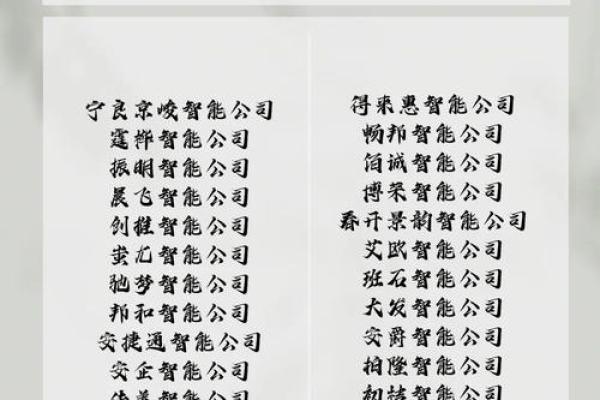 宁良京峻智能公司
霆桦智能公司
振明智能公司
晨飞智能公司
创推智能公司
蛍尤智能公司
驰梦智能公司
邦和智能公司
安捷通智能公司
安企智能公司
智能公司
得来惠智能公司
畅邦智能公司
佰诚智能公司
博荣智能公司
春开景韵智能公司
艾欧智能公司
班石智能公司
大发智能公司
安爵智能公司
柏隆智能公司
智能公司